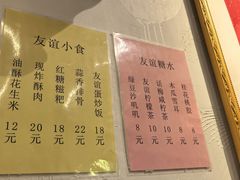 友谊小食
油酥花生米 12元
现炸酥肉 20元
红糖糍粑 18元
蒜香排骨 22元
友谊蛋炒饭 18元
友谊糖水
绿豆沙叽叽 8元
友谊柠檬茶 10元
话梅咸柠茶 10元
木瓜雪耳 10元
桂花桃胶 10元